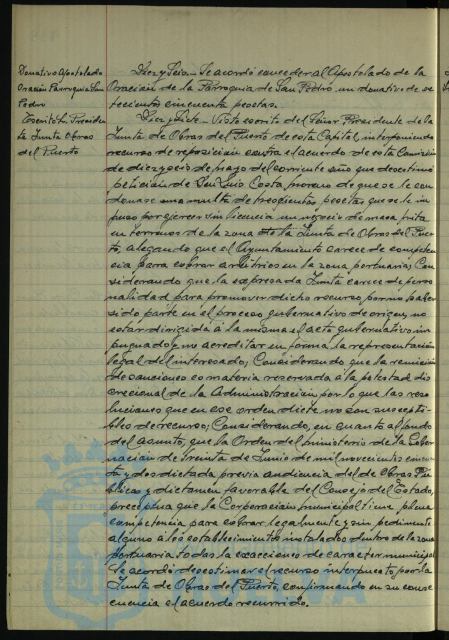 Donativo Apostolado
Oración Parroquia San
Pedro
Escrito Sr. Presiden-
te Junta Obras
del Puerto
Diez y Seis.- Se acordó conceder al Apostolado de la
Oración de la Parroquia de San Pedro un donativo de se-
tecientas cincuenta pesetas.
Diez y Siete.- Visto escrito del Señor Presidente de la
Junta de Obras del Puerto de esta Capital, interponiendo
recurso de reposición contra el acuerdo de esta Comisión
de diez y seis de mayo del corriente año que desestimó
petición de Don Luis Costa, de que se le con-
donase una multa de trescientas pesetas que se le im-
puso por ejercer sin licencia un negocio de masa frita
en terrenos de la zona de la Junta de Obras del Puer-
to, alegando que el Ayuntamiento carece de competen-
cia para cobrar arbitrios en la zona portuaria; Con-
siderando que la expresada Junta carece de perso-
nalidad para promover dicho recurso, por no haber
sido parte en el proceso gubernativo de origen, no
estar dirigida á la misma el acto gubernativo im-
pugnado y no acreditar en forma la representación
legal del interesado; Considerando que la remisión
de sanciones es materia reservada á la potestad dis-
crecional de la Administración, por lo que las reso-
luciones que en ese orden dicte no son suscepti-
bles de recurso; Considerando, en cuanto al fondo
del asunto, que la Orden del ministerio de la Gober-
nación de treinta de Junio de mil novecientos cincuen-
ta y dos dictada previa audiencia del de Obras Pú-
blicas y dictamen favorable del Consejo del Estado,
preceptúa que la Corporación municipal tiene plena
competencia para cobrar legalmente y sin pedimento
alguno á los establecimientos instalados dentro de la zona
portuaria todas las exacciones de caracter municipal
Se acordó desestimar el recurso interpuesto por la
Junta de Obras del Puerto, confirmando en su conse-
cuencia el acuerdo recurrido.